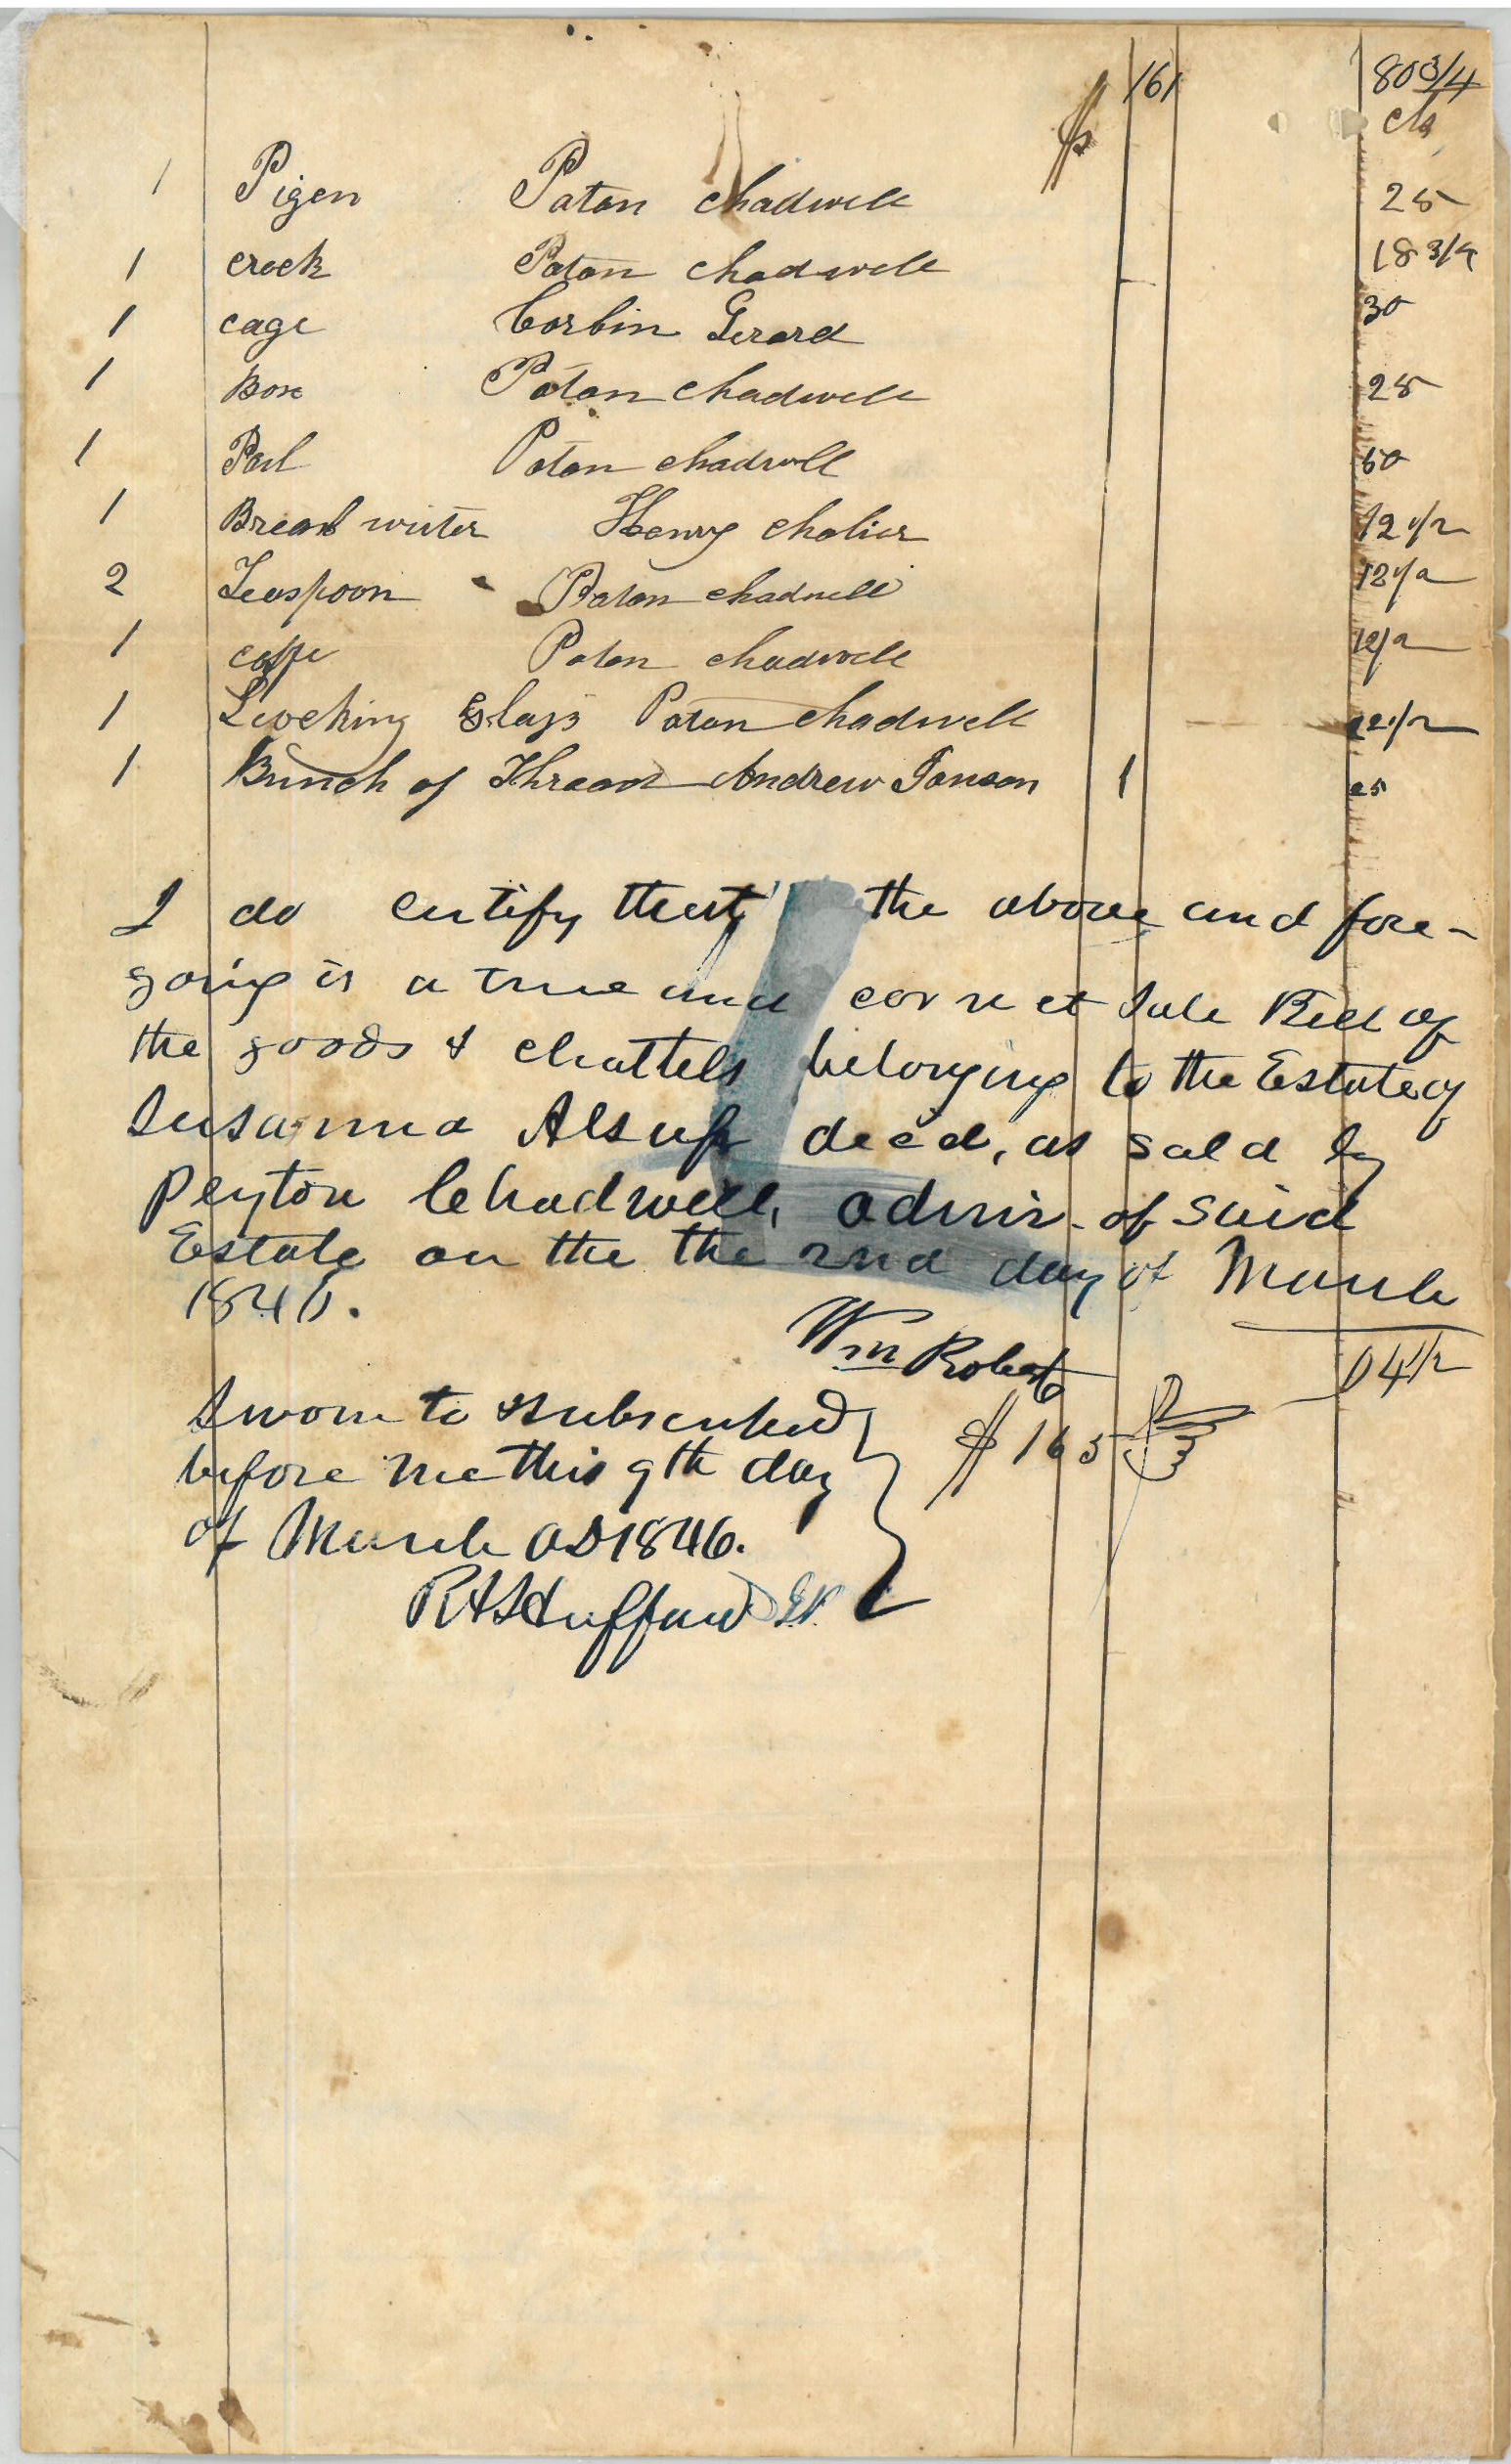 $ 161 80 3/4
cts
1 Pigen Paton chadwell 25
1 crock Paton chadwell 18 3/4
1 cage Corbin Gerard 30
1 Box Paton chadwell 25
1 Paton chadwell 50
1 Henry 12 1/2
2 Teaspoon Paton chadwell 12 1/2
1 Paton chadwell
1 Loocking Glass Paton chadwell
1 Bunch of Thread Andrew Jonson 1 25
I do certify that the above and fore-
going is a true and correct Sale Bill of
the goods & chattels belonging to the Estate of
Susanna Alsup deċd, as sold by
Peyton Chadwell, admir. of said
Estate on the the 2nd day of March
1846.
Wm Roberts
04 1/2
$ 165
Sworn to & subscribed
before me this 9th day
of March AD 1846.